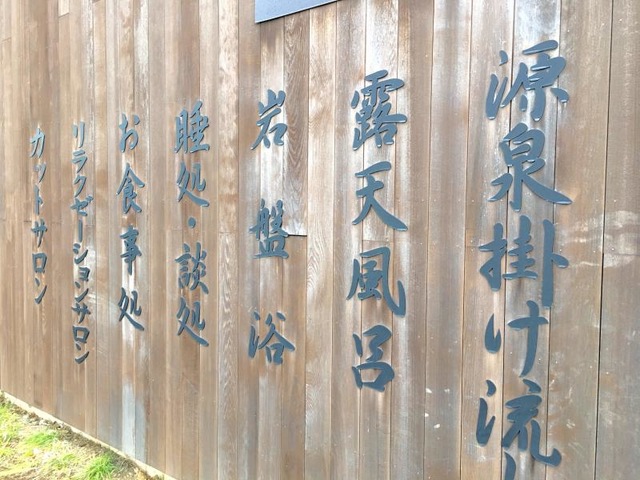 源泉掛け流し
露天風呂
岩盤浴
睡処・談処
お食事処
リラクゼーションサロン
カットサロン